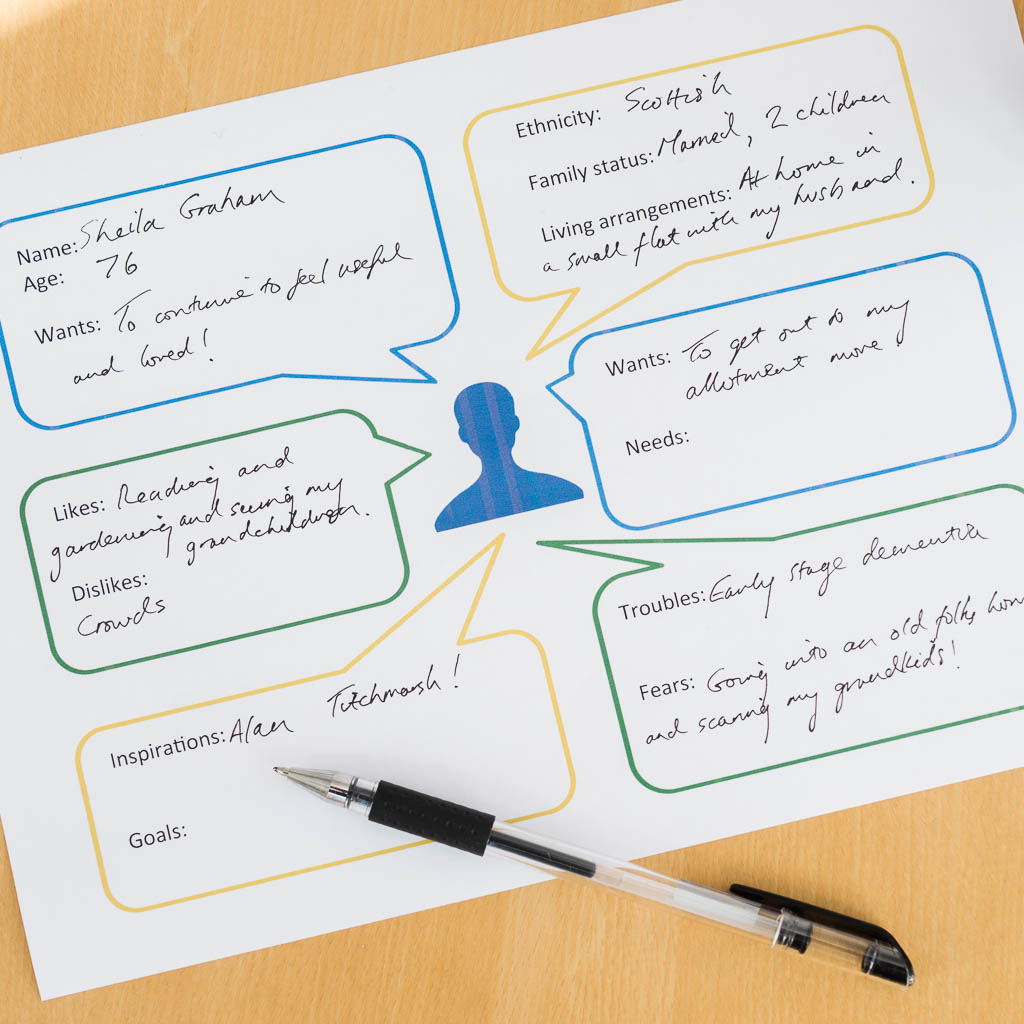 Name: Sheila Graham
Age: 76
Wants: To continue to feel useful
and loved!
Ethnicity: Scottish
Family status: Married, 2 children
Living arrangements: At home in
a small flat with my husband.
Wants: To get out to my
allotment more!
Needs:
Likes: Reading and
gardening and seeing my
grandchildren.
Dislikes:
Crowds
Troubles: Early stage dementia
Fears: Going into an old folks hom
and scaring my grandkids!
Inspirations: Alan Titchmarsh!
Goals: